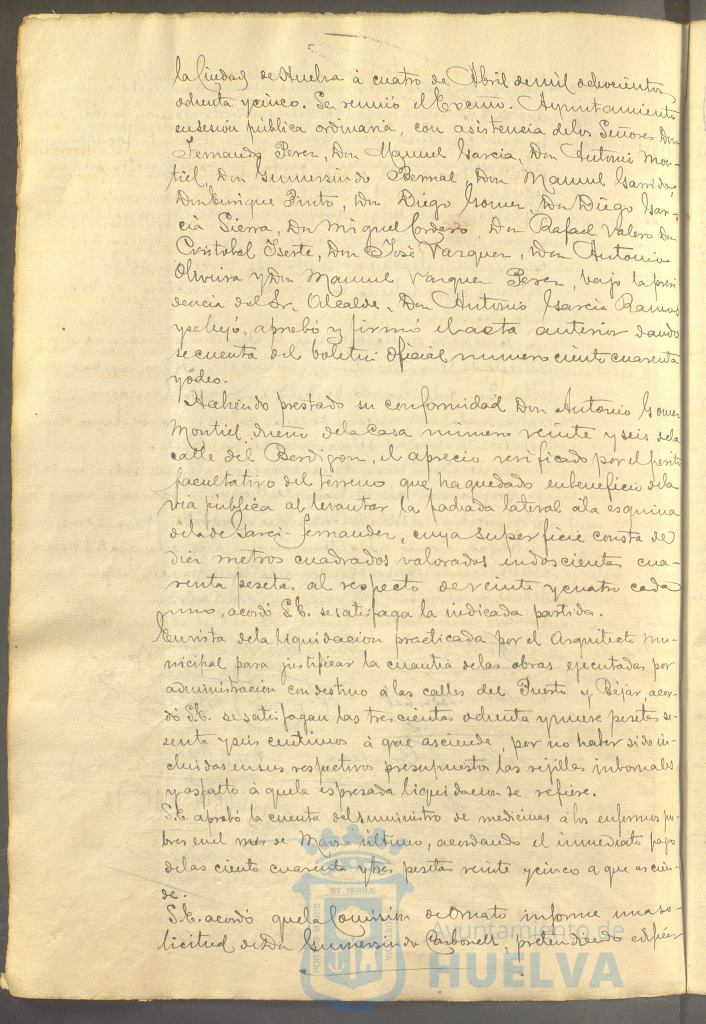 la Ciudad de Huelva á cuatro de Abril de mil ochocientos
ochenta y cinco. Se reunió el Excmo. Ayuntamiento
en sesion pública ordinaria, con asistencia de los Señores Don
Fernando Perez, Don Manuel Garcia, Don Antonio Mon-
tiel, Don Gumersindo Bernal, Don Manuel Garrido,
Don Enrique Pinto, Don Diego Gomez, Don Diego Gar-
cia Sierra, Don Miguel Cordero, Don Rafael Valero Don
Cristobal Iserte, Don José Vazquez, Don Antonio
Oliveira y Don Manuel Vazquez Perez, bajo la presi
dencia del Sr. Alcalde, Don Antonio Garcia Ramos
y se leyó, aprobó y firmó el acta anterior dando
se cuenta del boletin oficial numero ciento cuarenta
y dos.
Habiendo prestado su conformidad Don Antonio Gomez
Montiel, dueño de la Casa numero veinte y seis de la
calle del Berdigon, el aprecio verificado por el perito
facultativo del terreno que ha quedado en beneficio de la
via pública al levantar la fachada lateral á la esquina
de la de Garci-Fernandez, cuya superficie consta de
diez metros cuadrados valorados en doscientas cua-
renta pesetas al respecto de veinte y cuatro cada
uno, acordó S.E. se satisfaga la indicada partida.
En vista de la liquidacion practicada por el Arquitecto mu-
nicipal para justificar la cuantia de las obras ejecutadas por
administracion con destino á las calles del Puerto y Béjar, acor-
dó S.E. se satisfagan las trescientas ochenta y nueve pesetas se-
senta y seis centimos á que asciende, por no haber sido in-
cluidas en sus respectivos presupuestos las rejillas imbornales
y asfalto á que la espresada liquidacion se refiere.
S.E. aprobó la cuenta del suministro de medicinas á los enfermos po-
bres en el mes de Marzo último, acordando el inmediato pago
de las ciento cuarenta y tres pesetas veinte y cinco a que ascien-
de.
S.E. acordó que la Comision de Ornato informe una so-
licitud de Don Gumersindo Carbonell, pretendiendo edificar
PORTUS MARIS
ET TERRÆ
CUSTODIA
Ayuntamiento de
HUELVA